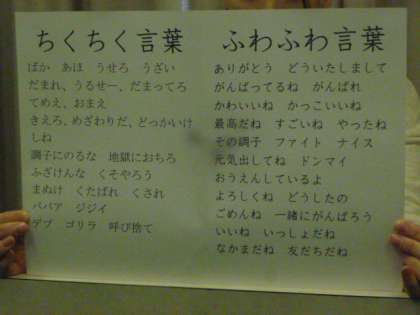 ちくちく言葉
ばか　あほ　うせろ　うざい
だまれ、うるせー、だまってろ
てめえ、おまえ
きえろ、めざわりだ、どっかいけ
しね
調子にのるな　地獄におちろ
ふざけんな　くそやろう
まぬけ　くたばれ　くされ
ババア　ジジイ
デブ　ゴリラ　呼び捨て
ふわふわ言葉
ありがとう　どういたしまして
がんばってるね　がんばれ
かわいいね　かっこいいね
最高だね　すごいね　やったね
その調子　ファイト　ナイス
元気出してね　ドンマイ
おうえんしているよ
よろしくね　どうしたの
ごめんね　一緒にがんばろう
いいね　いっしょだね
なかまだね　友だちだね